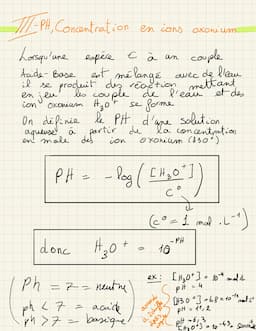 III - PH, Concentration en ions oxonium
Lorsqu'une espèce C à un couple
Acide-Base est mélangé avec de l'eau
il se produit des réaction mettant
en jeu le couple de l'eau et des
ion oxonium H3O+ se forme
On définie le PH d'une solution
aqueuse à partir de la concentration
en mole des ion oxonium (H3O+)
PH = -log([H3O+]/c°)
(c° = 1 mol.L-1)
donc H3O+ = 10-PH
(PH = 7 = neutre
ph < 7 = acide
ph > 7 = basique)
ex: [H3O+] = 10-4 mol.L
pH = 4
pH = 11,2
pH = 6,3
[H3O+] = 10-6,3